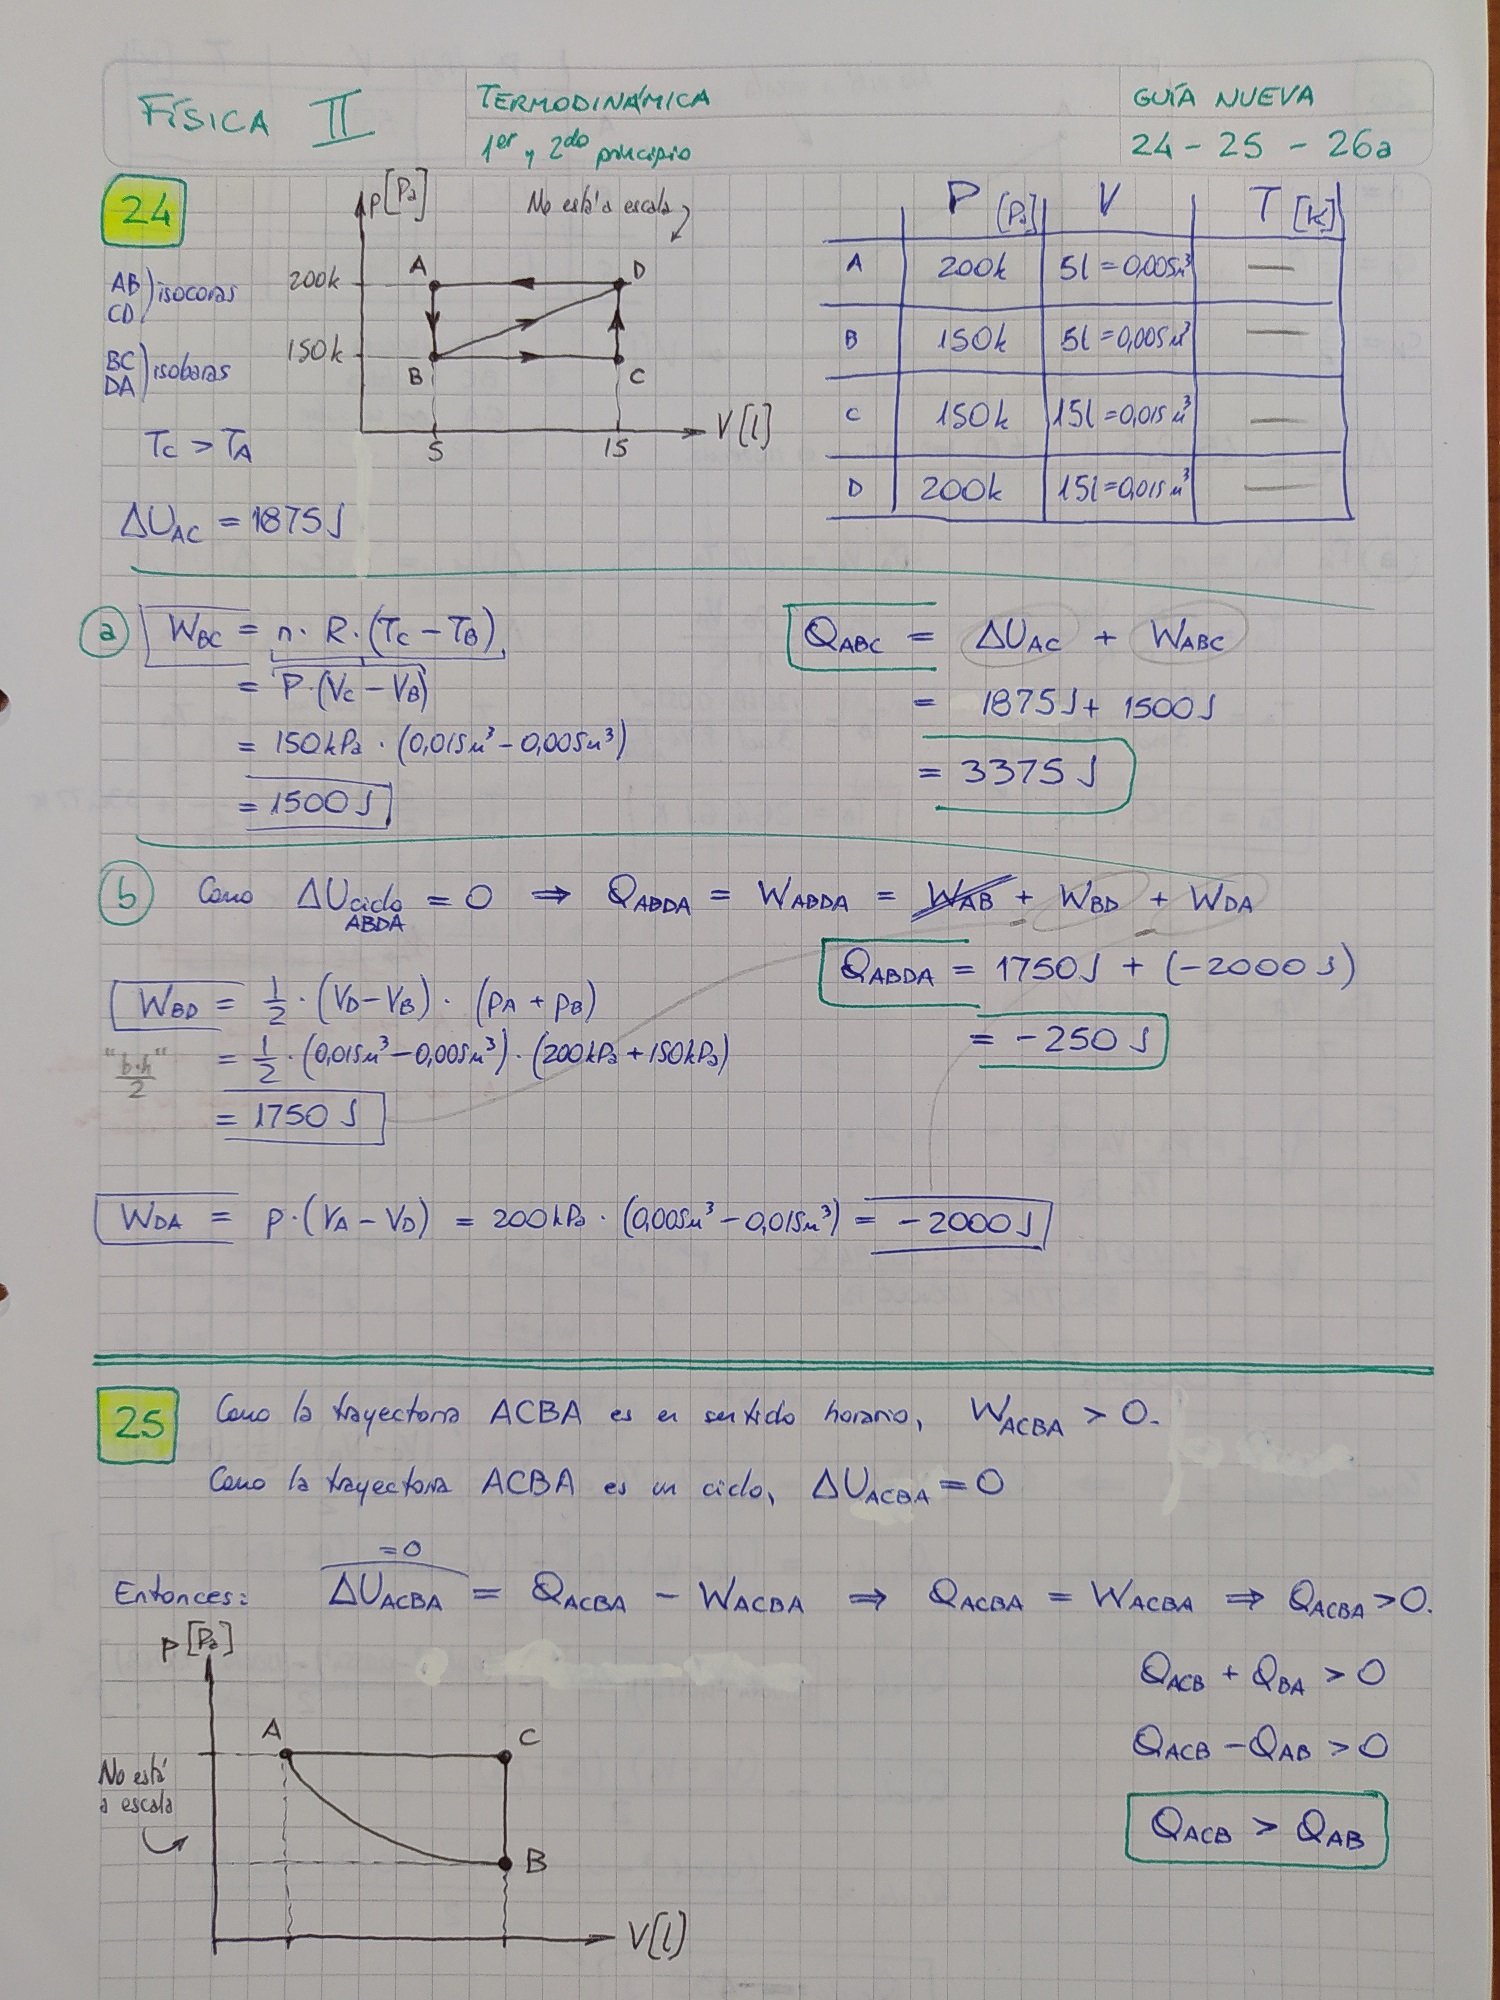 FÍSICA II
TERMODINÁMICA
1er y 2do principio
GUÍA NUEVA
24 - 25 - 26a
24
P[Pa]
No está a escala
A
D
200k
150k
B
C
5
15
V[l]
AB
CD ) isocoras
BC
DA ) isobaras
TC > TA
ΔUAC = 1875J
P [Pa] V T [K]
A 200k 5l = 0,005m³ —
B 150k 5l = 0,005m³ —
C 150k 15l = 0,015m³ —
D 200k 15l = 0,015m³ —
a WBC = n · R · (TC - TB)
= P · (VC - VB)
= 150kPa · (0,015m³ - 0,005m³)
= 1500J
QABC = ΔUAC + WABC
= 1875J + 1500J
= 3375J
b Como ΔUciclo ABDA = 0 ⇒ QABDA = WABDA = WAB + WBD + WDA
QABDA = 1750J + (-2000J)
= -250J
WBD = 1/2 · (VD - VB) · (pA + pB)
"b·h/2" = 1/2 · (0,015m³ - 0,005m³) · (200kPa + 150kPa)
= 1750J
WDA = p · (VA - VD) = 200kPa · (0,005m³ - 0,015m³) = -2000J
25 Como la trayectoria ACBA es en sentido horario, WACBA > 0.
Como la trayectoria ACBA es un ciclo, ΔUACBA = 0
= 0
Entonces: ΔUACBA = QACBA - WACBA ⇒ QACBA = WACBA ⇒ QACBA > 0.
QACB + QBA > 0
QACB - QAB > 0
QACB > QAB
P[Pa]
A
C
No está
a escala
B
V[l]